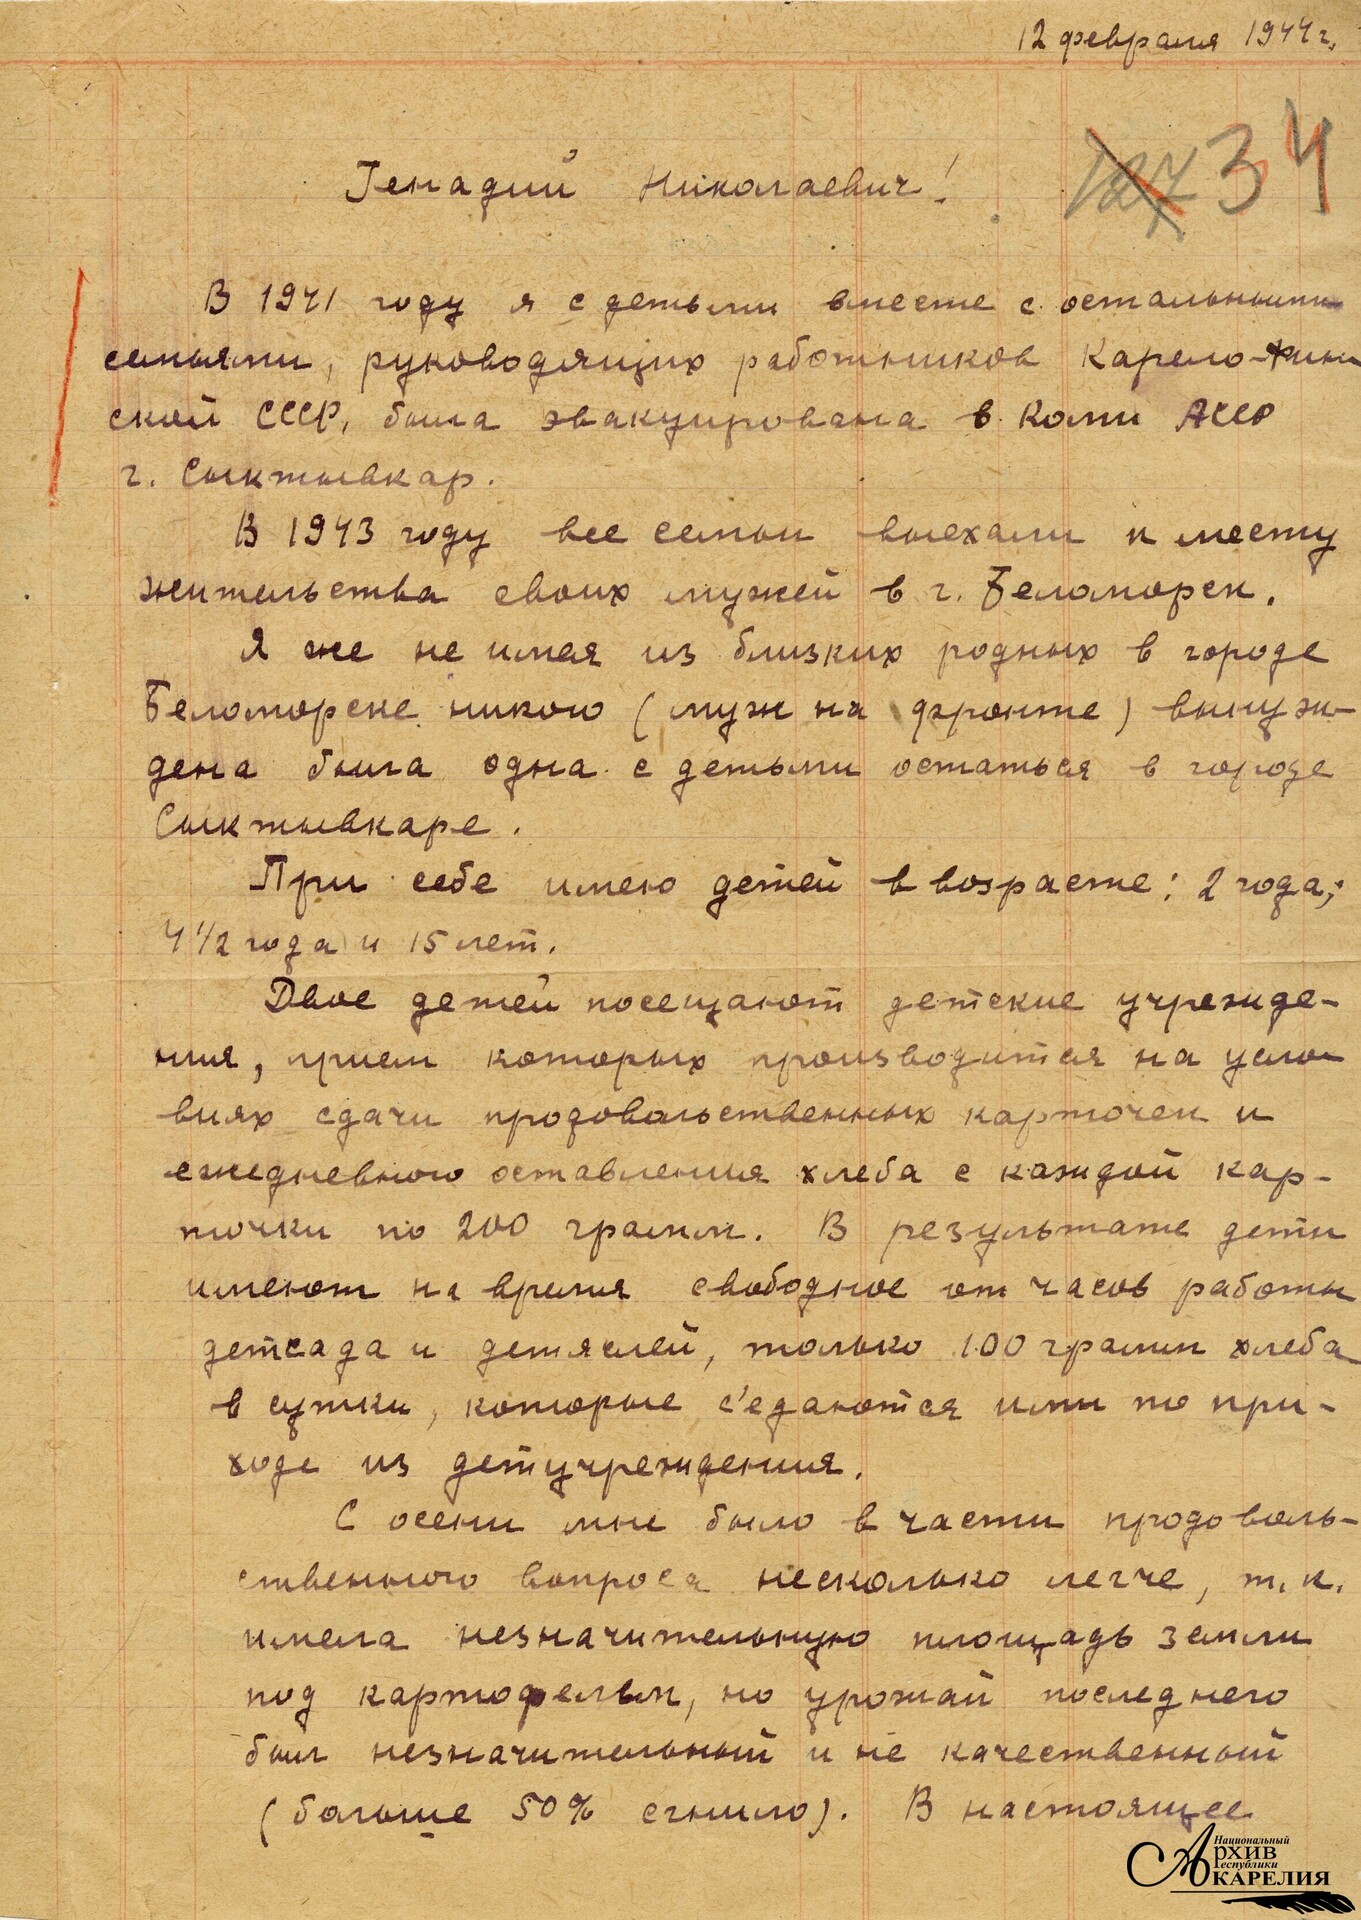 12 февраля 1944 г.
127 34
Генадий Николаевич!
В 1941 году я с детьми вместе с остальными
семьями, руководящих работников Карело-Фин
ской СССР, была эвакуирована в Коми АССР
г. Сыктывкар.
В 1943 году все семьи выехали к месту
жительства своих мужей в г. Беломорск.
Я же не имея из близких родных в городе
Беломорске никого (муж на фронте) вынуж-
дена была одна с детьми остаться в городе
Сыктывкаре.
При себе имею детей в возрасте: 2 года;
4 1/2 года и 15 лет.
Двое детей посещают детские учрежде-
ния, прием которых производится на усло
виях сдачи продовольственных карточек и
ежедневного оставления хлеба с каждой кар-
точки по 200 грамм. В результате дети
имеют на время свободное от часов работы
детсада и детяслей, только 100 грамм хлеба
в сутки, которые с'едаются ими по при-
ходе из детучреждения.
С осени мне было в части продоволь-
ственного вопроса несколько легче, т.к.
имела незначительную площадь земли
под картофелем, но урожай последнего
был незначительный и не качественный
(больше 50% сгнило). В настоящее
Национальный
Архив
Республики
Карелия